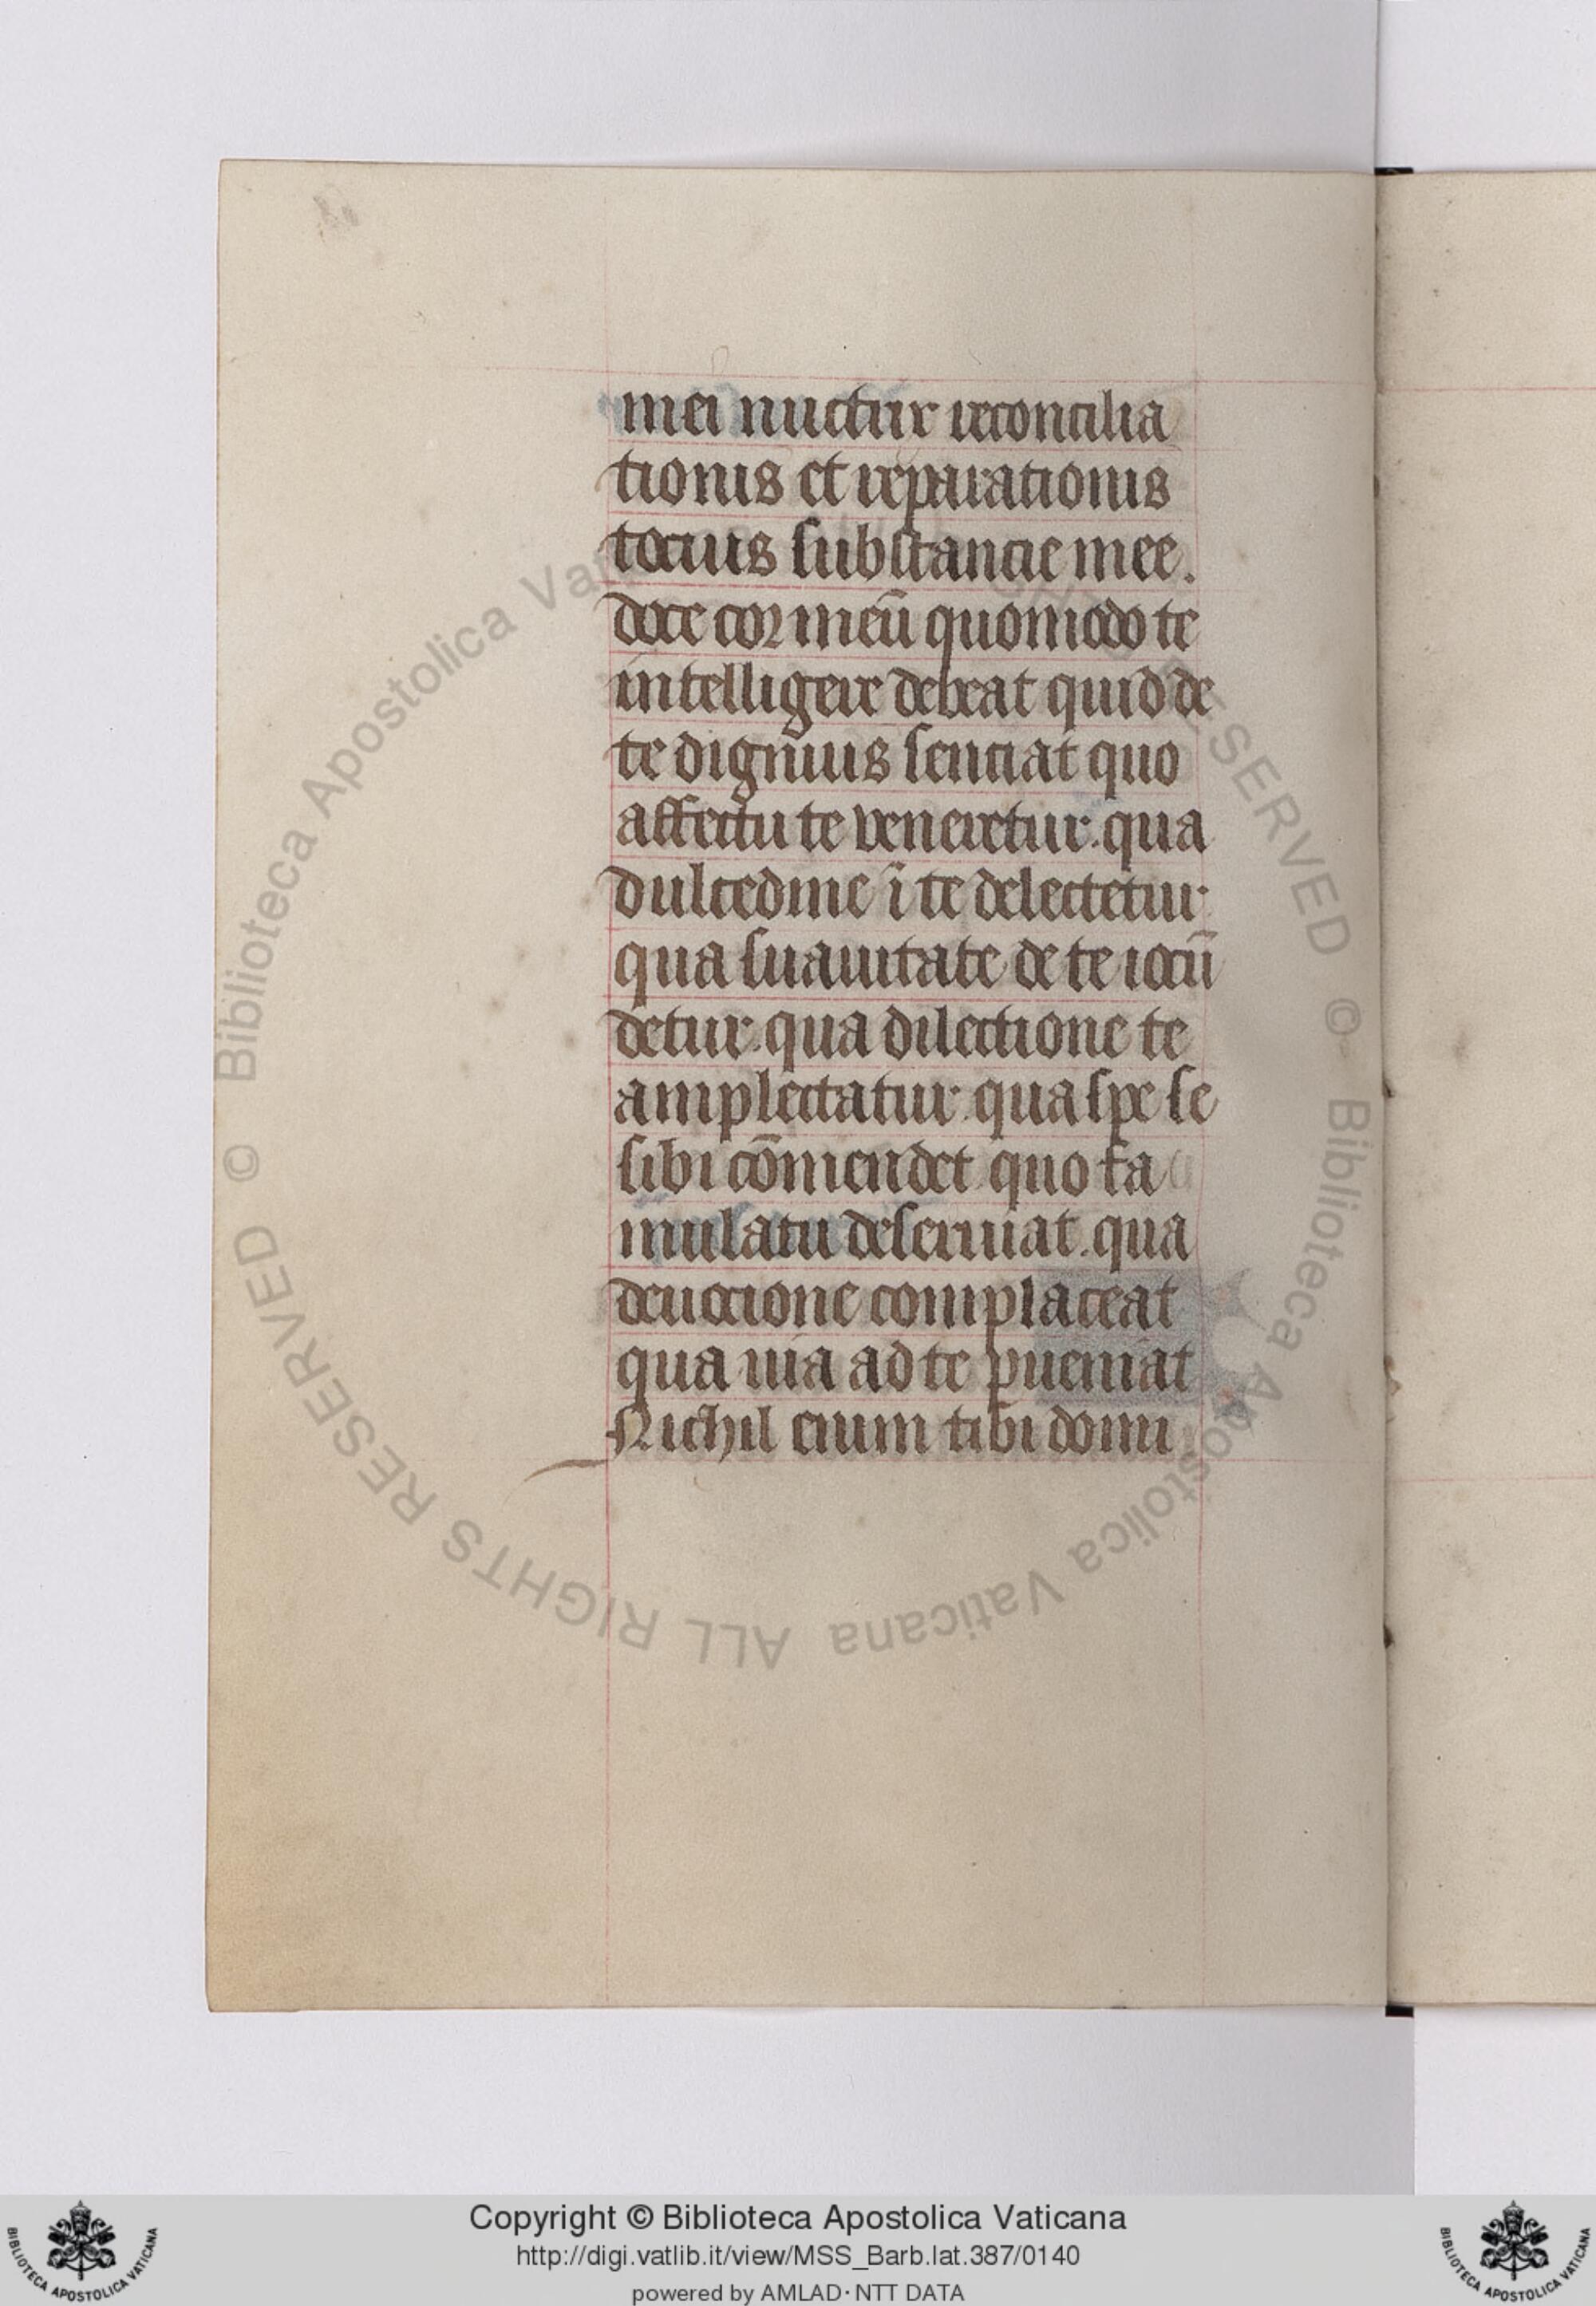 mei nuctur reconcilia
tionis et reparationis
tocius substancie mee.
doce cor meū quomodo te
intelligere debeat quid de
te dignius senciat quo
affectu te veneretur. qua
dulcedine ī te delectetur
qua suauitate de te iocū
detur. qua dilectione te
amplectatur. qua spe se
sibi cōmendet. quo fa
mulatu deseruiat. qua
deuocione complaceat
qua uia ad te ꝑueniat
Nichil enim tibi domi
Copyright © Biblioteca Apostolica Vaticana
http://digi.vatlib.it/view/MSS_Barb.lat.387/0140
powered by AMLAD·NTT DATA
BIBLIOTECA APOSTOLICA VATICANA
BIBLIOTECA APOSTOLICA VATICANA
© Biblioteca Apostolica Vaticana ALL RIGHTS RESERVED
© Biblioteca Apostolica Vaticana ALL RIGHTS RESERVED